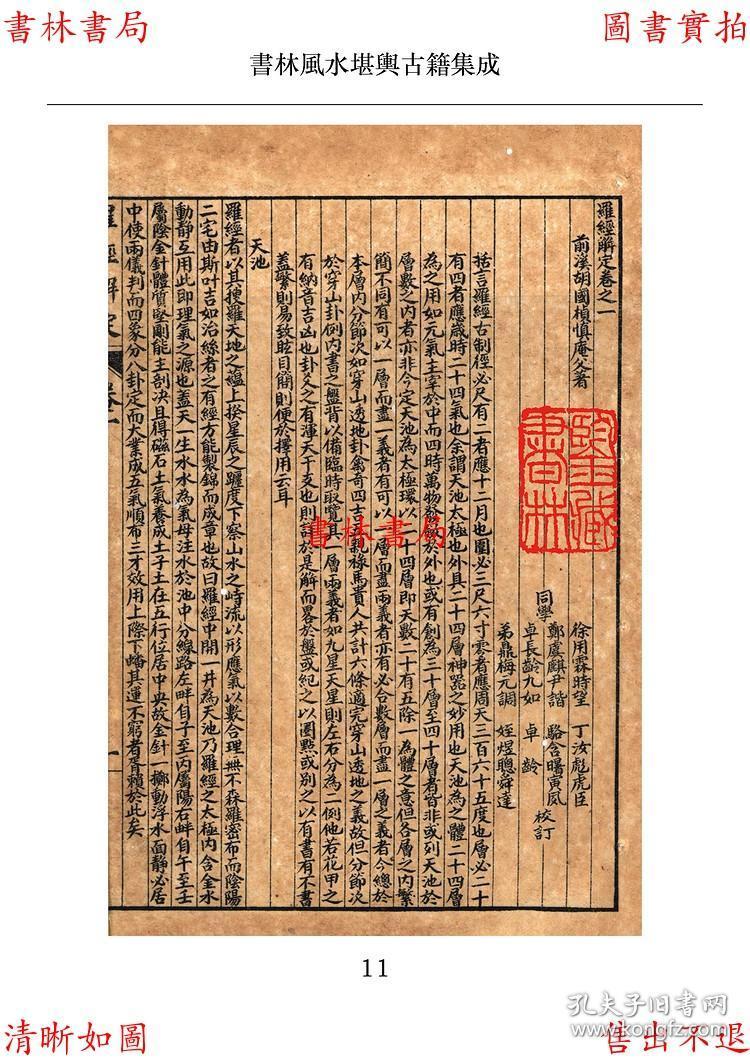 書林書局
圖書實拍
書林風水堪輿古籍集成
羅經解定卷之一
前溪胡國楨慎庵父著
徐用霖時望 丁汝彪虎臣
鄭虞麒尹諧 駱含曙寅夙
同學 校訂
卓長齡九如 卓 齡
弟鼎梅元調 姪煜聰舜達
括言羅經古制徑必尺有二者應十二月也圍必三尺六寸零者應周天三百六十五度也層必二十
有四者應歲時二十四氣也余謂天池太極也外具二十四層神器之妙用也天池為之體二十四層
為之用如元氣主宰於中而四時萬物發斂於外也或有創為三十層至四十層者皆非或列天池於
層數之內者亦非今定天池為太極環以二十四層即天數二十有五除一為體之意但各層之內繁
簡不同有可以一層而盡一義者有可以一層而盡兩義者亦有必合數層而盡一層之義者今總於
本層內分節次如穿山透地卦禽奇四吉五親祿馬貴人共計六條適完穿山透地之義故但分節次
於穿山卦例內書之盤背以備臨時取覽其一層兩義者如九星天星則左右分為二例他若花甲之
有納音吉凶也卦爻之有渾天干支也則詳於是解而畧於盤或紀之以圈點或別之以有書有不書
蓋繁則易致眩目簡則便於擇用云耳
天池
羅經者以其搜羅天地之緼上揆星辰之躔度下察山水之峙流以形應氣以數合理無不森羅密布而陰陽
二宅由斯叶吉如治絲者之有經方能製錦而成章也故曰羅經中開一井為天池乃羅經之太極內含金水
動靜互用此即理氣之源也蓋天一生水水為氣母注水於池中分線路左畔自子至丙屬陽右畔自午至壬
屬陰金針體質堅剛能主剖決且得磁石土氣養成土子土在五行位居中央故金針一擲動浮水面靜必居
中使兩儀判而四象分八卦定而大業成五氣順布三才效用上際下蟠其運不窮者胥賴於此矣
書林書局
11
清晰如圖
售出不退
孔夫子旧书网
www.kongfz.com